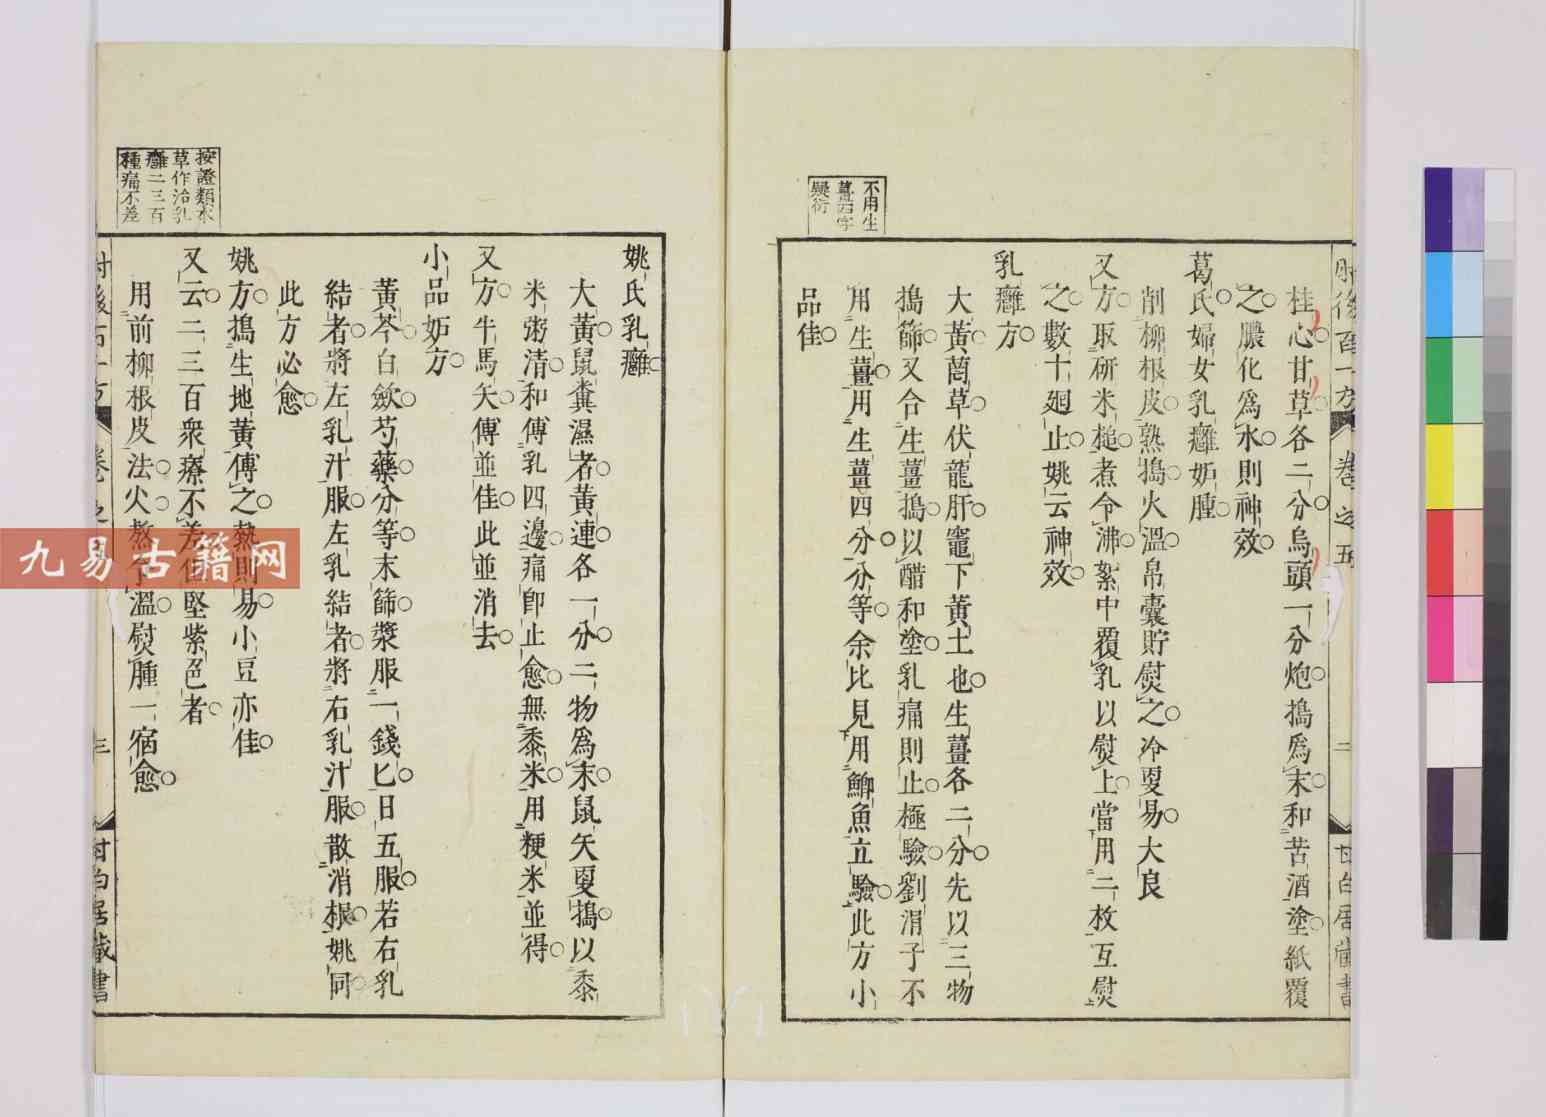 肘後百一方 卷之五 二 甘白居藏書
不用生
薑四字
疑衍
桂心甘草各二分烏頭一分炮搗爲末和苦酒塗紙覆
之膿化爲水則神效
葛氏婦女乳癰妬腫
削柳根皮熟搗火溫帛囊貯熨之冷更易大良
又方取研米槌煮令沸絮中覆乳以熨上當用二枚互熨
之數十廻止姚云神效
乳癰方
大黃䓞草伏龍肝竈下黃土也生薑各二分先以三物
搗篩又合生薑搗以醋和塗乳痛則止極驗劉涓子不
用生薑用生薑四分分等余比見用鯽魚立驗此方小
品佳
姚氏乳癰
大黃鼠糞濕者黃連各一分二物爲末鼠矢更搗以黍
米粥清和傅乳四邊痛卽止愈無黍米用粳米並得
又方牛馬矢傅並佳此並消去
小品妬方
黃芩白斂芍藥分等末篩漿服一錢匕日五服若右乳
結者將左乳汁服左乳結者將右乳汁服散消根姚同
此方必愈
姚方搗生地黃傅之熱則易小豆亦佳
又云二三百衆療不差但堅紫色者
用前柳根皮法火熬令溫熨腫一宿愈
按證類本
草作治乳
癰二三百
種痛不差
肘後百一方 卷之五 三 甘白居藏書
九易古籍网